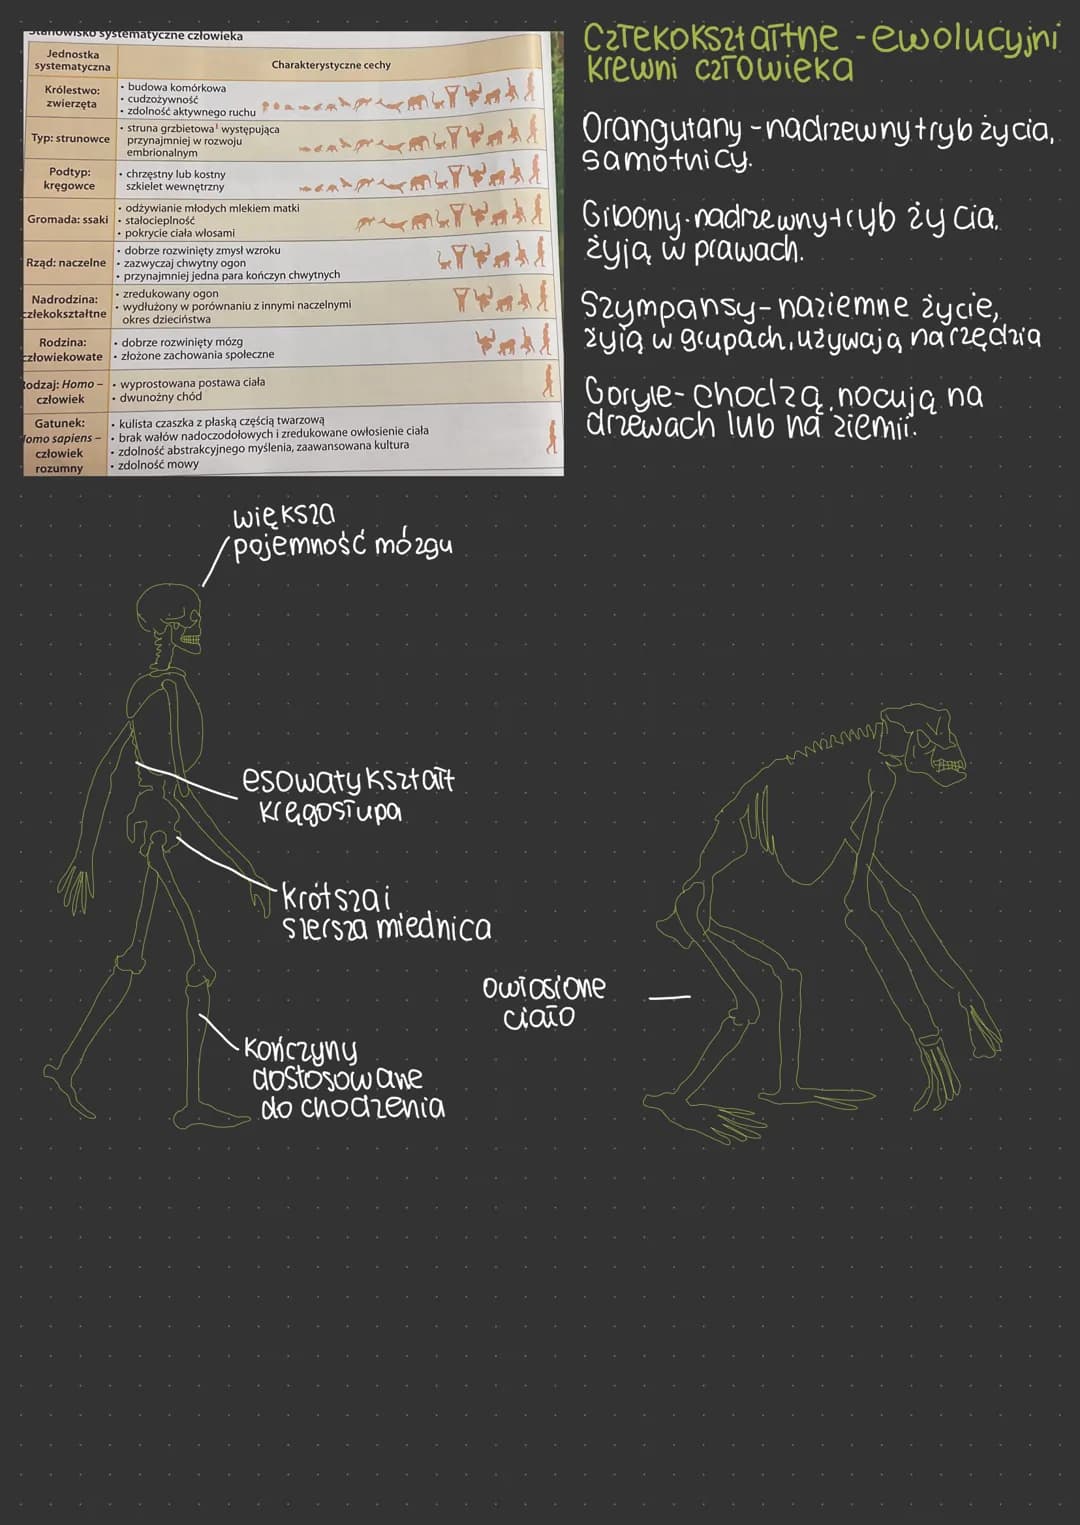 Stanowisko systematyczne człowieka
Jednostka
systematyczna
Charakterystyczne cechy
Królestwo:
zwierzęta
• budowa komórkowa
• cudzożywność
• zdolność aktywnego ruchu
Typ: strunowce
• struna grzbietowa¹ występująca
przynajmniej w rozwoju
embrionalnym
Podtyp:
kręgowce
• chrzęstny lub kostny
szkielet wewnętrzny
Gromada: ssaki
• odżywianie młodych mlekiem matki
• stałocieplność
• pokrycie ciała włosami
Rząd: naczelne
• dobrze rozwinięty zmysł wzroku
• zazwyczaj chwytny ogon
• przynajmniej jedna para kończyn chwytnych
Nadrodzina:
człekokształtne
• zredukowany ogon
• wydłużony w porównaniu z innymi naczelnymi
okres dzieciństwa
Rodzina:
człowiekowate
• dobrze rozwinięty mózg
• złożone zachowania społeczne
Rodzaj: Homo –
człowiek
• wyprostowana postawa ciała
• dwunożny chód
Gatunek:
Homo sapiens –
człowiek
rozumny
• kulista czaszka z płaską częścią twarzową
• brak wałów nadoczodołowych i zredukowane owłosienie ciała
• zdolność abstrakcyjnego myślenia, zaawansowana kultura
• zdolność mowy
Człekokształtne - ewolucyjni
krewni człowieka
Orangutany - nadrzewny tryb życia,
samotnicy.
Gibony - nadrzewny tryb życia,
żyją w prawach.
Szympansy - naziemne życie,
żyją w grupach, używają narzędzia
Goryle - chodzą, nocują na
drzewach lub na ziemii.
większa
pojemność mózgu
esowaty kształt
kręgosłupa
krótsza i
szersza miednica
owłosione
ciało
kończyny
dostosowane
do chodzenia